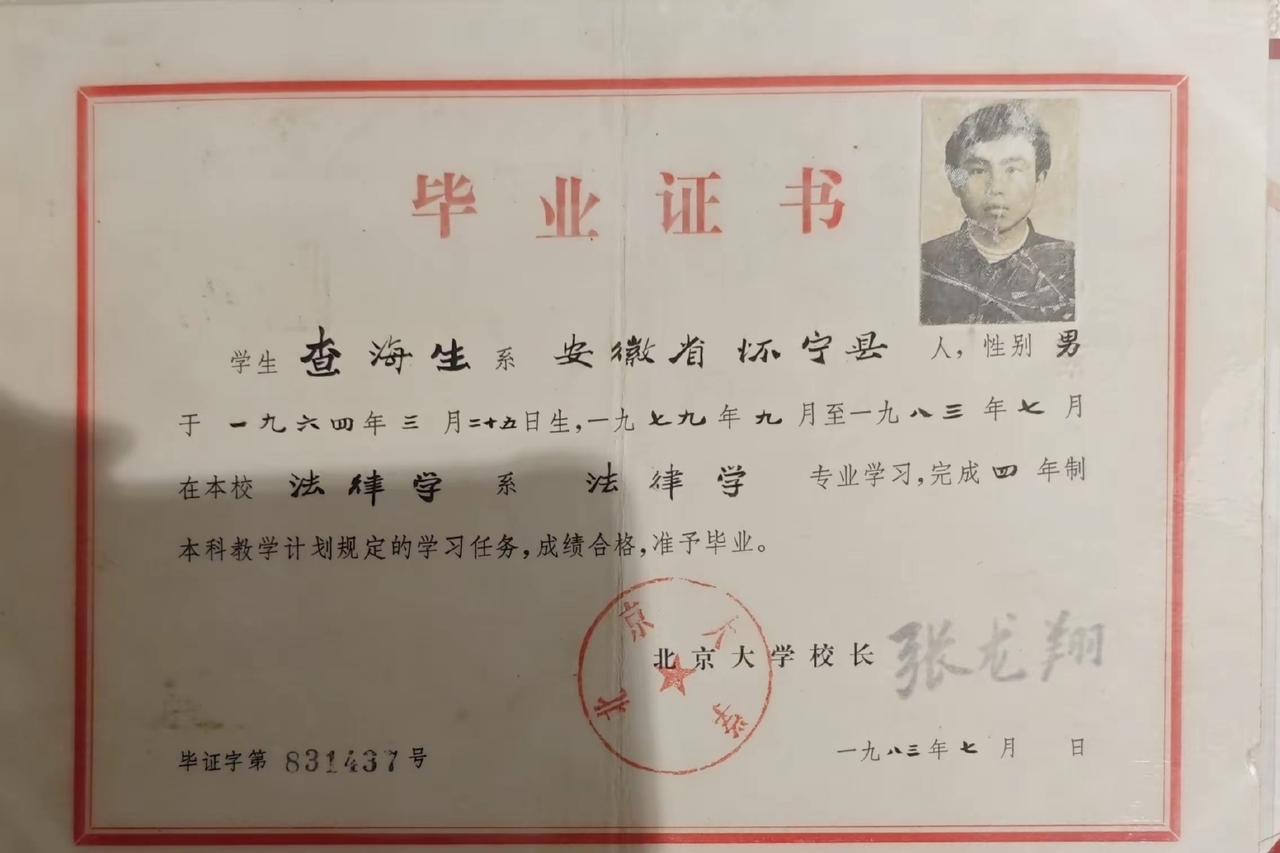 毕业证书
学生 查海生 系 安徽省怀宁县 人，性别 男
于一九六四年三月二十五日生，一九七九年九月至一九八三年七月
在本校 法律学 系 法律学 专业学习，完成四年制
本科教学计划规定的学习任务，成绩合格，准予毕业。
北京大学
北京大学校长 张龙翔
毕证字第 831437 号
一九八三年七月 日